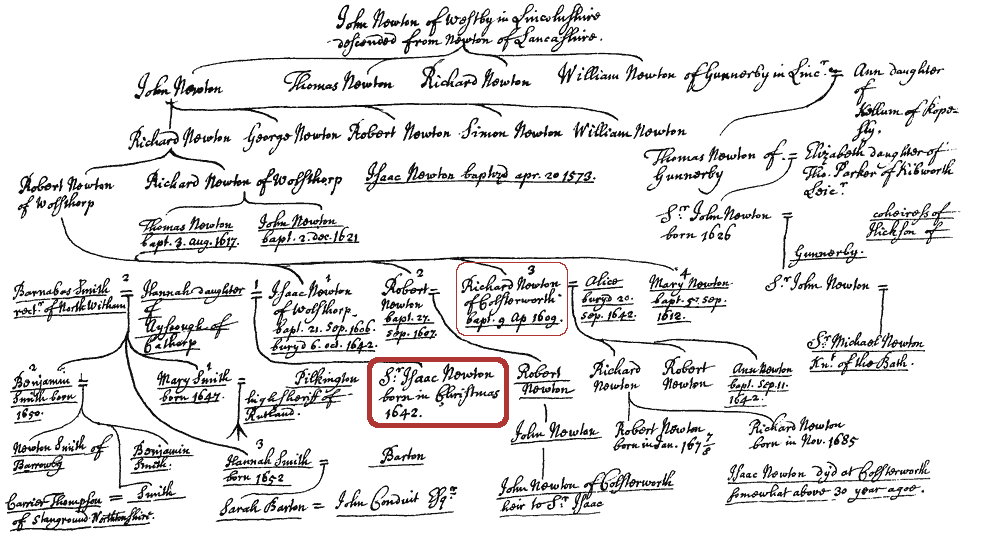 John Newton of Westby in Lincolnshire
descended from Newton of Lancashire.
John Newton
Thomas Newton
Richard Newton
William Newton of Gunnerby in Linc^r. =
Ann daughter
of
Kellum of Kope-
sly.
Richard Newton
George Newton
Robert Newton
Simon Newton
William Newton
Thomas Newton of =
Gunnerby
Elizabeth daughter of
Tho. Parker of Kibworth
Leic^r.
Robert Newton
of Wolsthorp
Richard Newton of Wolsthorp
Isaac Newton baptzd apr. 20 1573.
Thomas Newton
bapt. 3. aug. 1617.
John Newton
bapt. 2. dec. 1621
S^r. John Newton =
born 1626
coheiress of
Hickson of
Gunnerby.
Barnabas Smith
rect^r. of North Witham
2
=
Hannah daughter
of
Ayscough of
Catharp
1
=
1
Isaac Newton
of Wolsthorp
bapt. 21. Sep. 1606.
buryd 6. oct. 1642.
2
Robert =
Newton
bapt. 27.
Sep. 1607.
3
Richard Newton
of Colsterworth
bapt. 9 Ap 1609.
=
Alice
buryd 20.
Sep. 1642.
4
Mary Newton
bapt. 5. Sep.
1612.
S^r. John Newton =
S^r. Michael Newton
Kn^t. of the Bath.
2
Benjamin =
Smith born
1650.
1
Mary Smith =
born 1647.
Pilkington
high sherif of
Rutland.
S^r. Isaac Newton
born in Christmas
1642.
Robert
Newton
Richard
Newton
Robert
Newton
Ann Newton
bapt. Sep. 11.
1642.
Newton Smith of
Barrowby
Benjamin
Smith.
3
Hannah Smith =
born 1652
Barton
John Newton
Robert Newton
born in Jan. 167 7/8
Richard Newton
born in Nov. 1685
Carrier Thompson =
of Stanground Northtonshire.
Smith
Sarah Barton =
John Conduit Esq^r
John Newton of Colsterworth
heir to S^r. Isaac
Isaac Newton dyd at Colsterworth
somewhat above 30 year agoe.